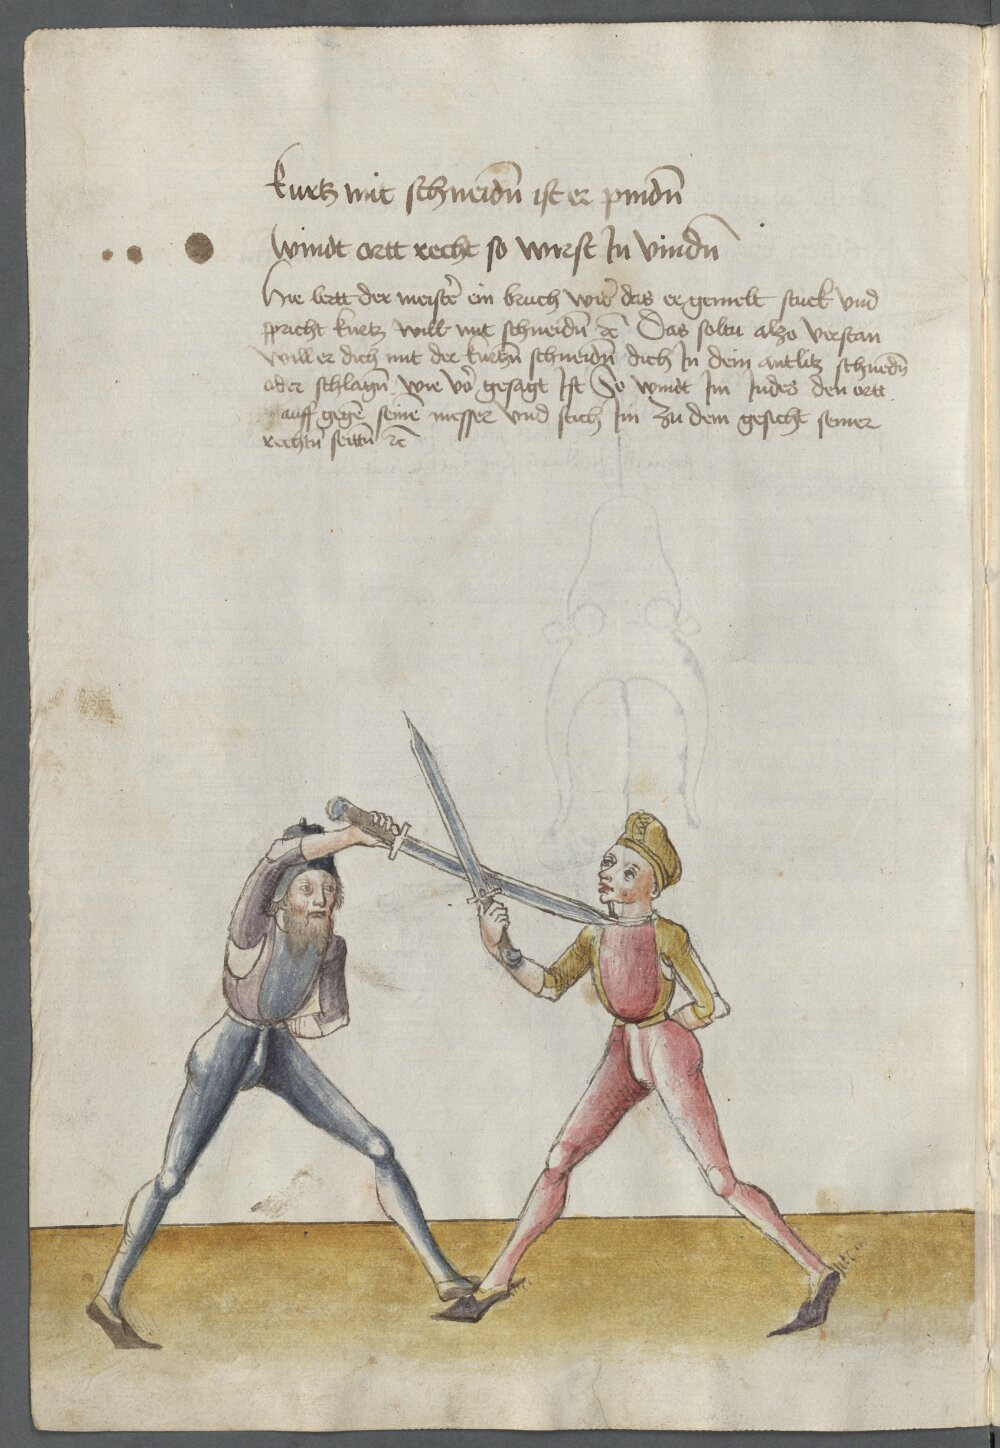 kurtz mit schneidn̄ ist er pindn̄
windt ortt recht so wirst In vindn̄
Hie lertt der meistˀ ein bruch widˀ das er gemelt stuck vnd
spricht kurtz will mit schneidn̄ ꝛc̄ Das soltu alzo verstan
will er dich mit der kurtzn̄ schneidn̄ dich In dein antlitz schneidn̄
oder schlagn̄ wie vōr gesagt Ist So windt Im Indes den ortt
auff gegē seinē messer vnd stich Im zu dem gesicht seiner
rechtn̄ seittn̄ ꝛc̄